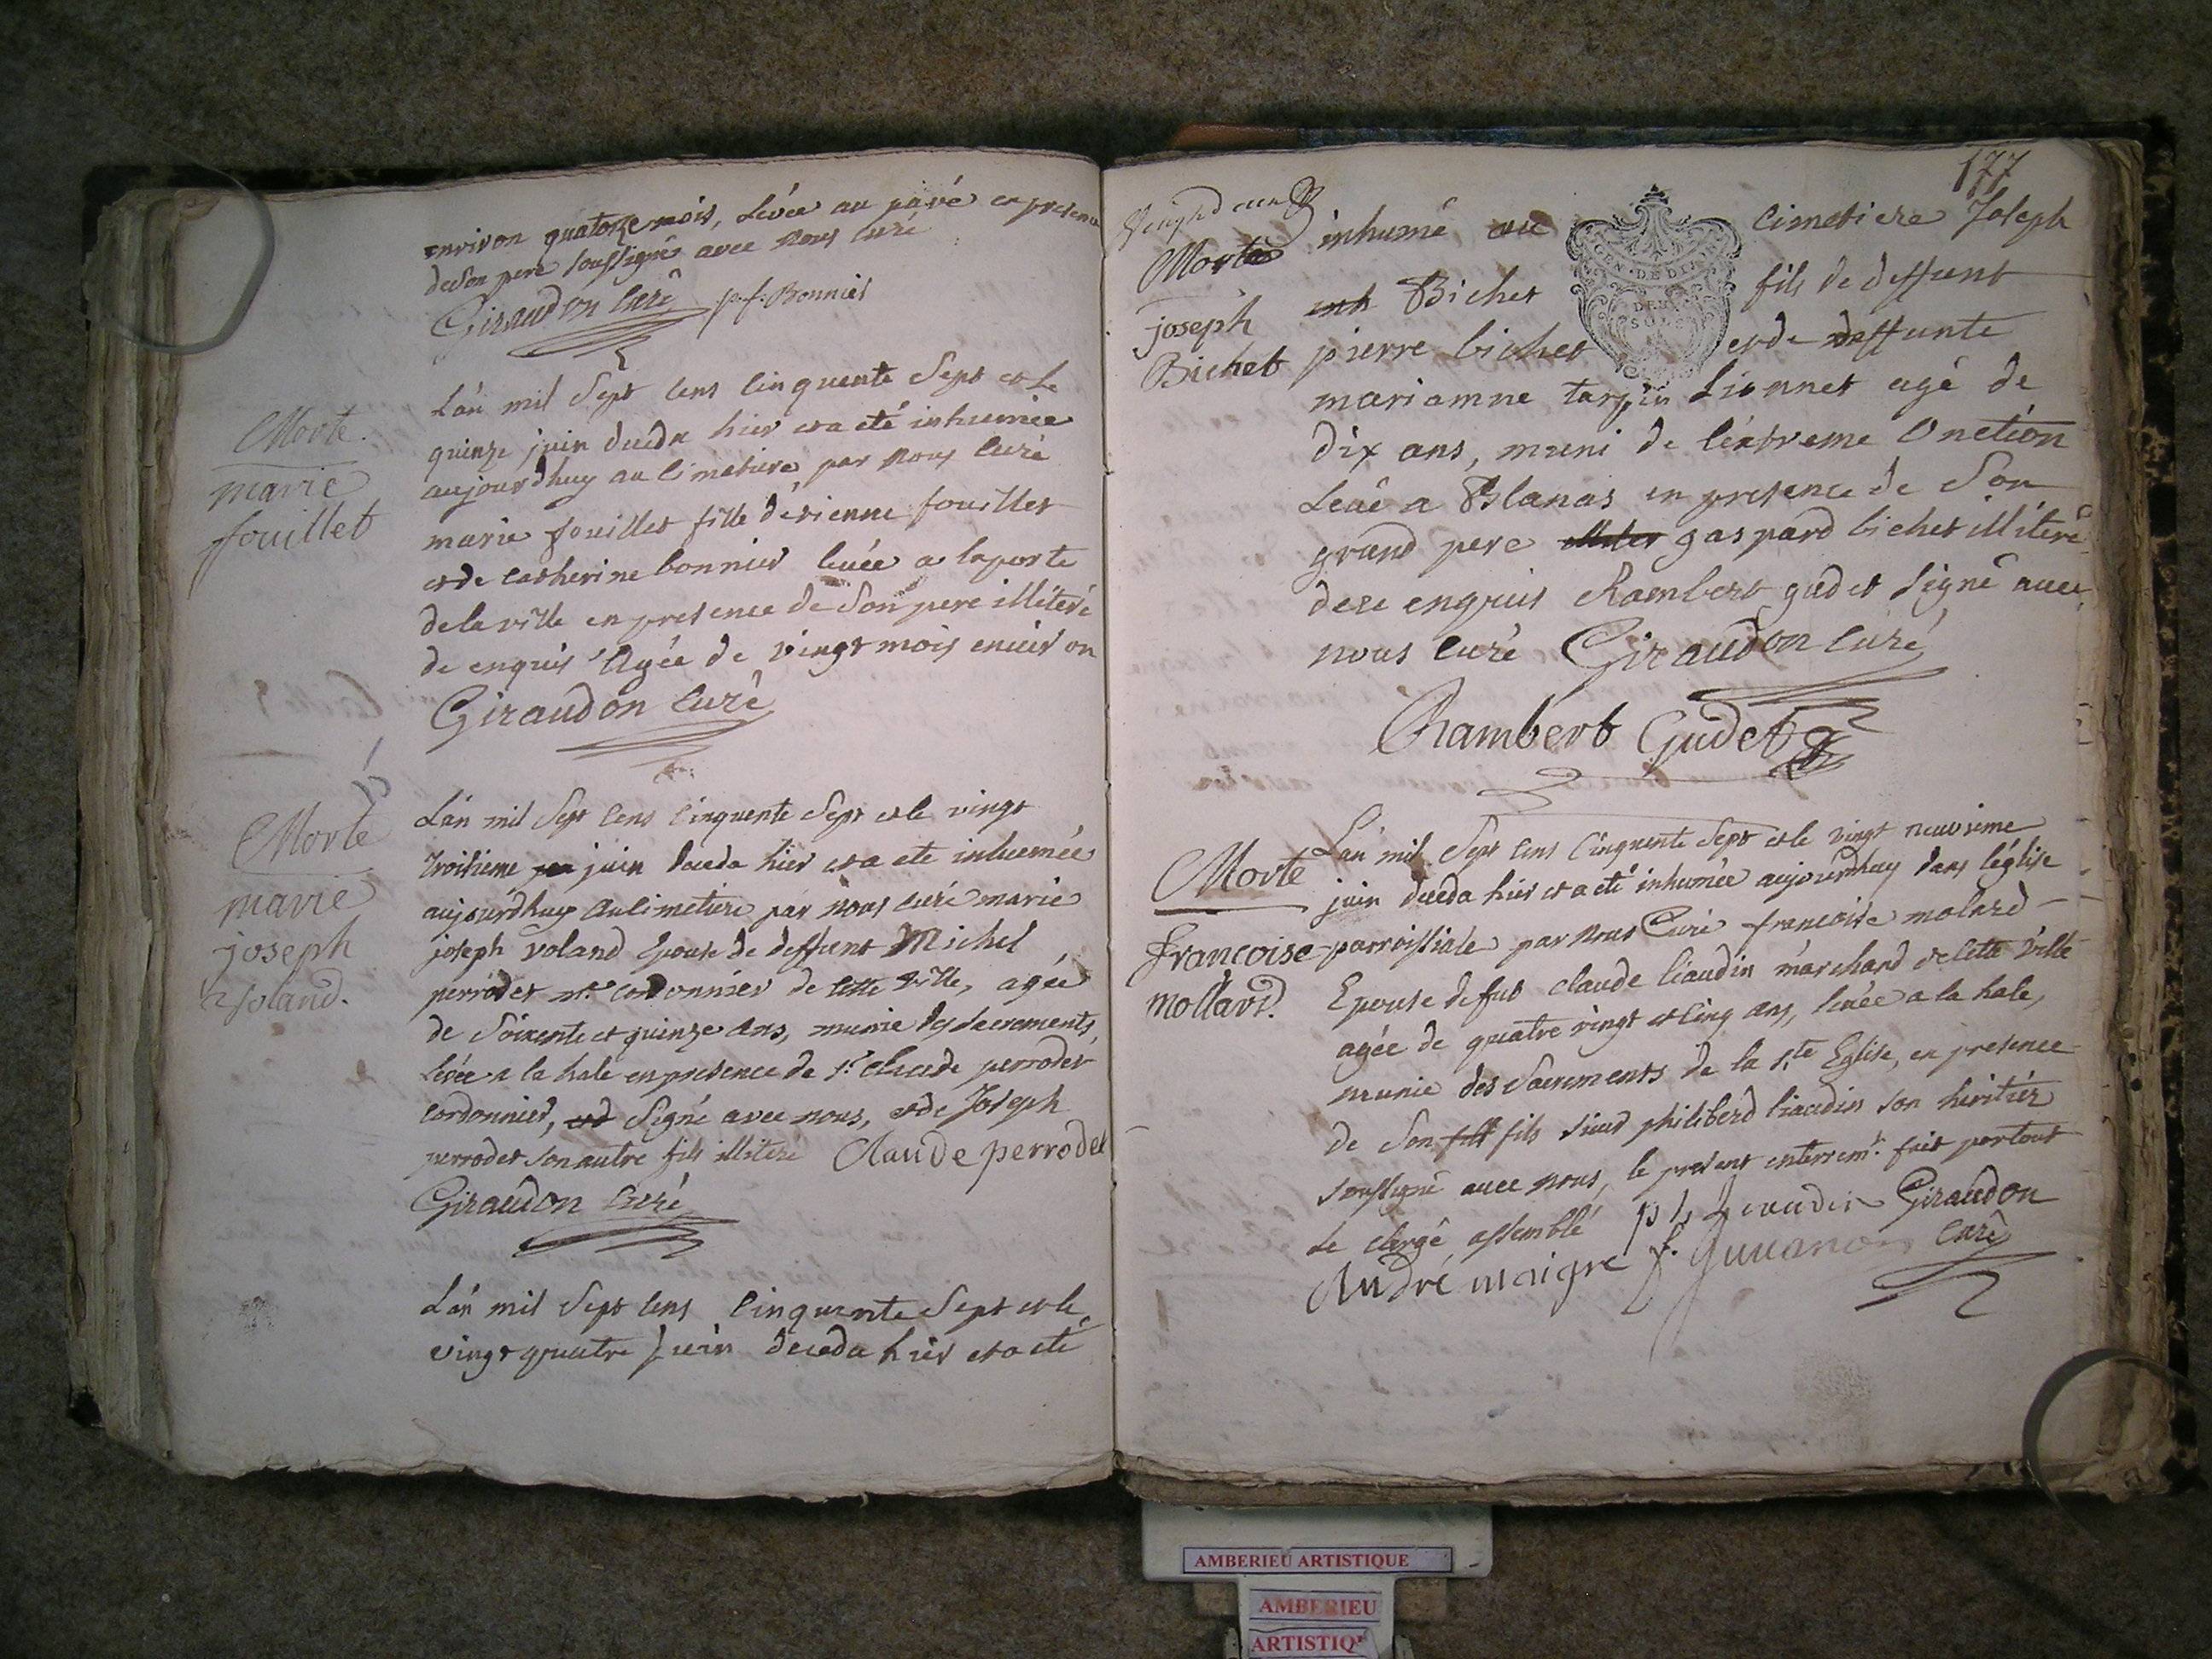 environ quatorze mois, Levée au pavé en presence
de Son pere soussigné avec nous Curé
Giraudon Curé p. f. Bonnier
Morte
marie
fouillet
L'an mil Sept Cens Cinquente Sept et le
quinze juin deceda hier et a eté inhumée
aujourdhuy au Cimetiere par nous Curé
marie fouillet fille d'etienne fouillet
et de Catherine bonnier levée a la porte
de la ville en presence de Son pere illiteré
de enquis Agée de vingt mois environ
Giraudon Curé
Morte
marie
joseph
voland.
L'an mil Sept Cens Cinquente Sept et le vingt
troisieme juin deceda hier et a eté inhumée
aujourdhuy au Cimetiere par nous Curé marie
joseph voland Epouse de deffunt Michel
perrodet mtre cordonnier de Cette ville, agée
de Soixente et quinze ans, munie des sacrements,
levée a la hale en presence de sr Claude perrodet
cordonnier, Signé avec nous, et de Joseph
perrodet son autre fils illiteré Claude perrodet
Giraudon Curé
L'an mil Sept Cens Cinquente Sept et le
vingt quatre Juin deceda hier et a eté
177
GEN. DE DIJON
DEUX
SOLS
Mort
joseph
Bichet
inhumé au Cimetiere Joseph
Bichet fils de deffunt
pierre bichet et de deffunte
mariamne tarpin Lionnet agé de
dix ans, muni de l'extreme Onction
Levé a Blanas en presence de Son
grand pere gaspard bichet illiteré
de ce enquis Rambert gudet signé avec
nous Curé Giraudon Curé
Rambert Gudet
Morte
francoise
mollard.
L'an mil Sept Cens Cinquente Sept et le vingt neuvieme
juin deceda hier et a eté inhumée aujourdhuy dans l'église
parroissiale par nous Curé francoise molard
Epouse de fut claude liaudin marchand de cette ville
agée de quatre vingt et Cinq ans, levée a la hale,
munie des Sacrements de la Ste Eglise, en presence
de Son fils sieur philiberd liaudin son heritier
soussigné avec nous, le present enterremt. fait par tout
le clergé assemblé p h Liaudin Giraudon
André maigre Curé
AMBERIEU ARTISTIQUE
AMBERIEU
ARTISTIQ